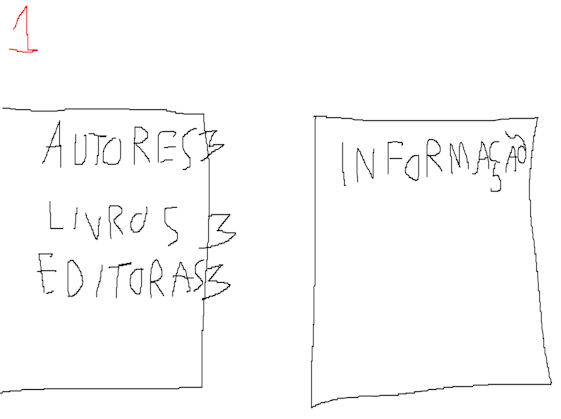 1
AUTORES 3
LIVROS 3
EDITORAS 3
INFORMAÇÃO